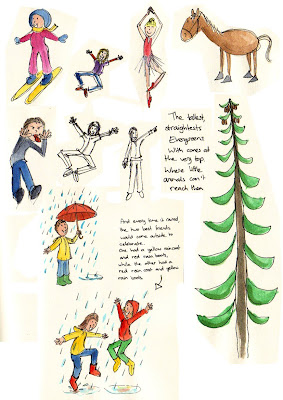 The tallest,
straightests
Evergreens
With cones at
the very top,
Where little
animals can't
reach them
And every time it rained,
the two best friends
would come outside to
celebrate.
One had a yellow raincoat
and red rain boots,
while the other had a
red rain coat and yellow
rain boots.